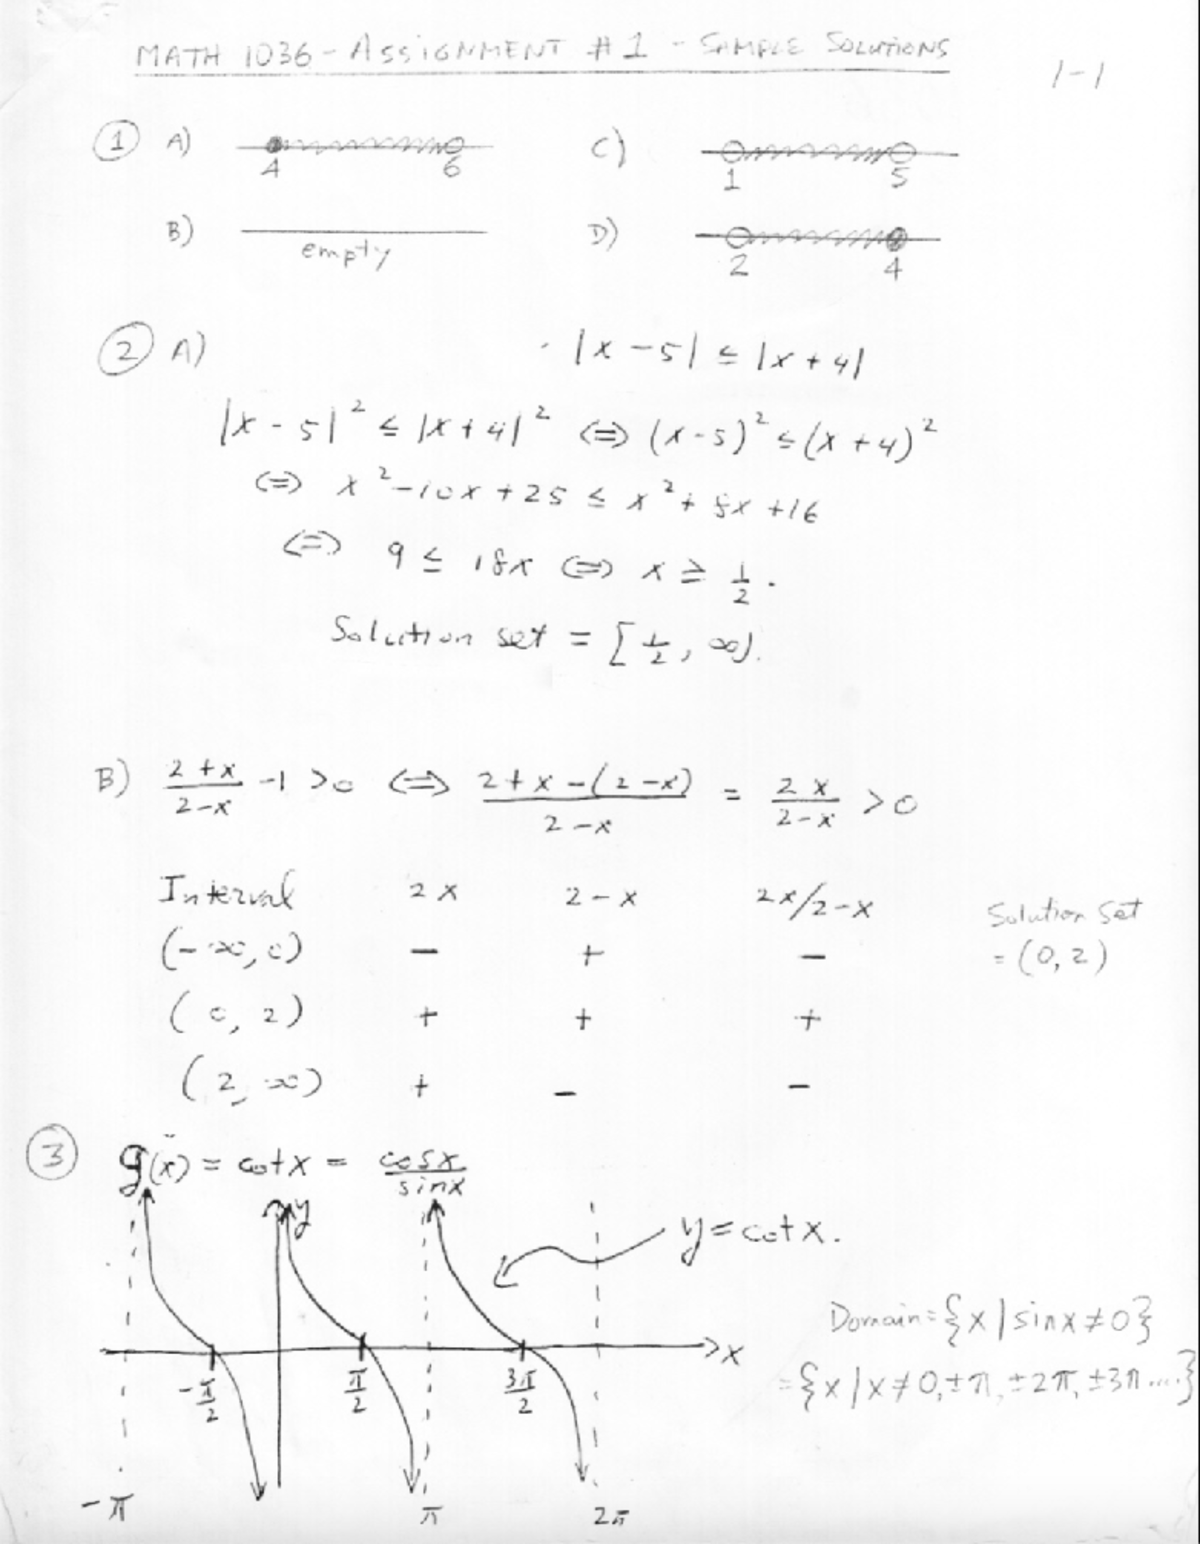 MATH 1036 - ASSIGNMENT #1 - SAMPLE SOLUTIONS
1-1
① A) 4 6 C) 1 5
B) empty D) 2 4
② A) |x - 5| ≤ |x + 4|
|x - 5|² ≤ |x + 4|² ⟺ (x - 5)² ≤ (x + 4)²
⟺ x² - 10x + 25 ≤ x² + 8x + 16
⟺ 9 ≤ 18x ⟺ x ≥ 1/2.
Solution set = [1/2, ∞).
B) (2+x)/(2-x) - 1 > 0 ⟺ (2+x-(2-x))/(2-x) = 2x/(2-x) > 0
Interval 2x 2-x 2x/2-x
(-∞, 0) - + -
(0, 2) + + +
(2, ∞) + - -
Solution Set
= (0, 2)
③ g(x) = cot x = cos x/sin x
y
y = cot x.
x
-π/2 π/2 3π/2
-π π 2π
Domain = {x | sin x ≠ 0}
= {x | x ≠ 0, ±π, ±2π, ±3π ....}